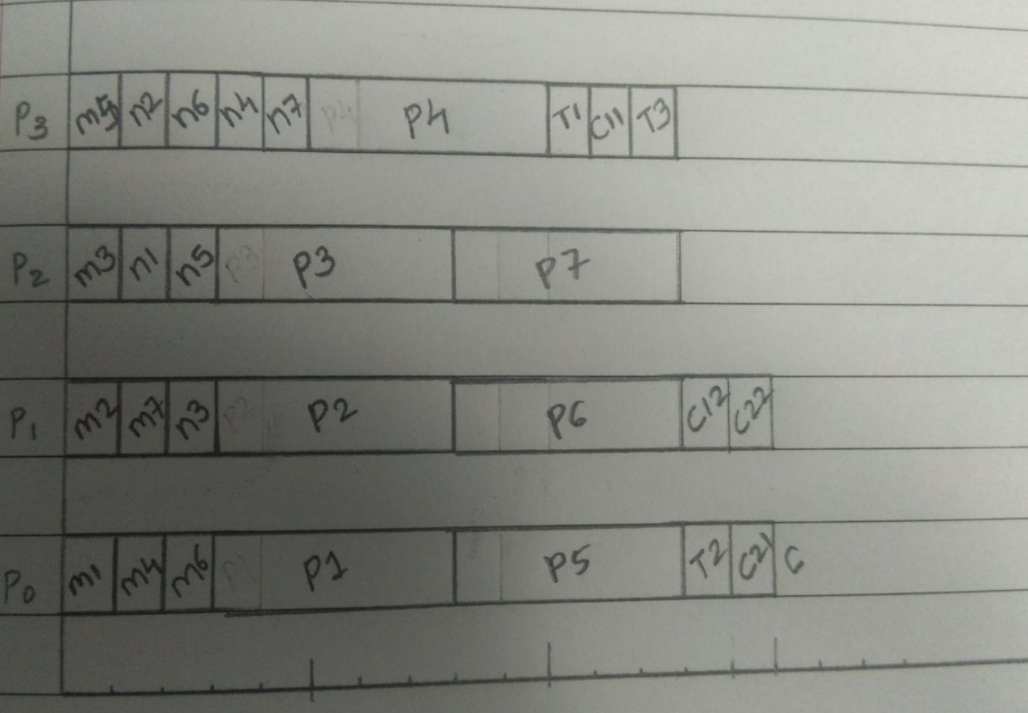 P3 m5 n2 n6 n4 n7 P4 T1 C11 T3
P2 m3 n1 n5 P3 P7
P1 m2 m7 n3 P2 P6 C12 C22
P0 m1 m4 m6 P1 P5 T2 C21 C